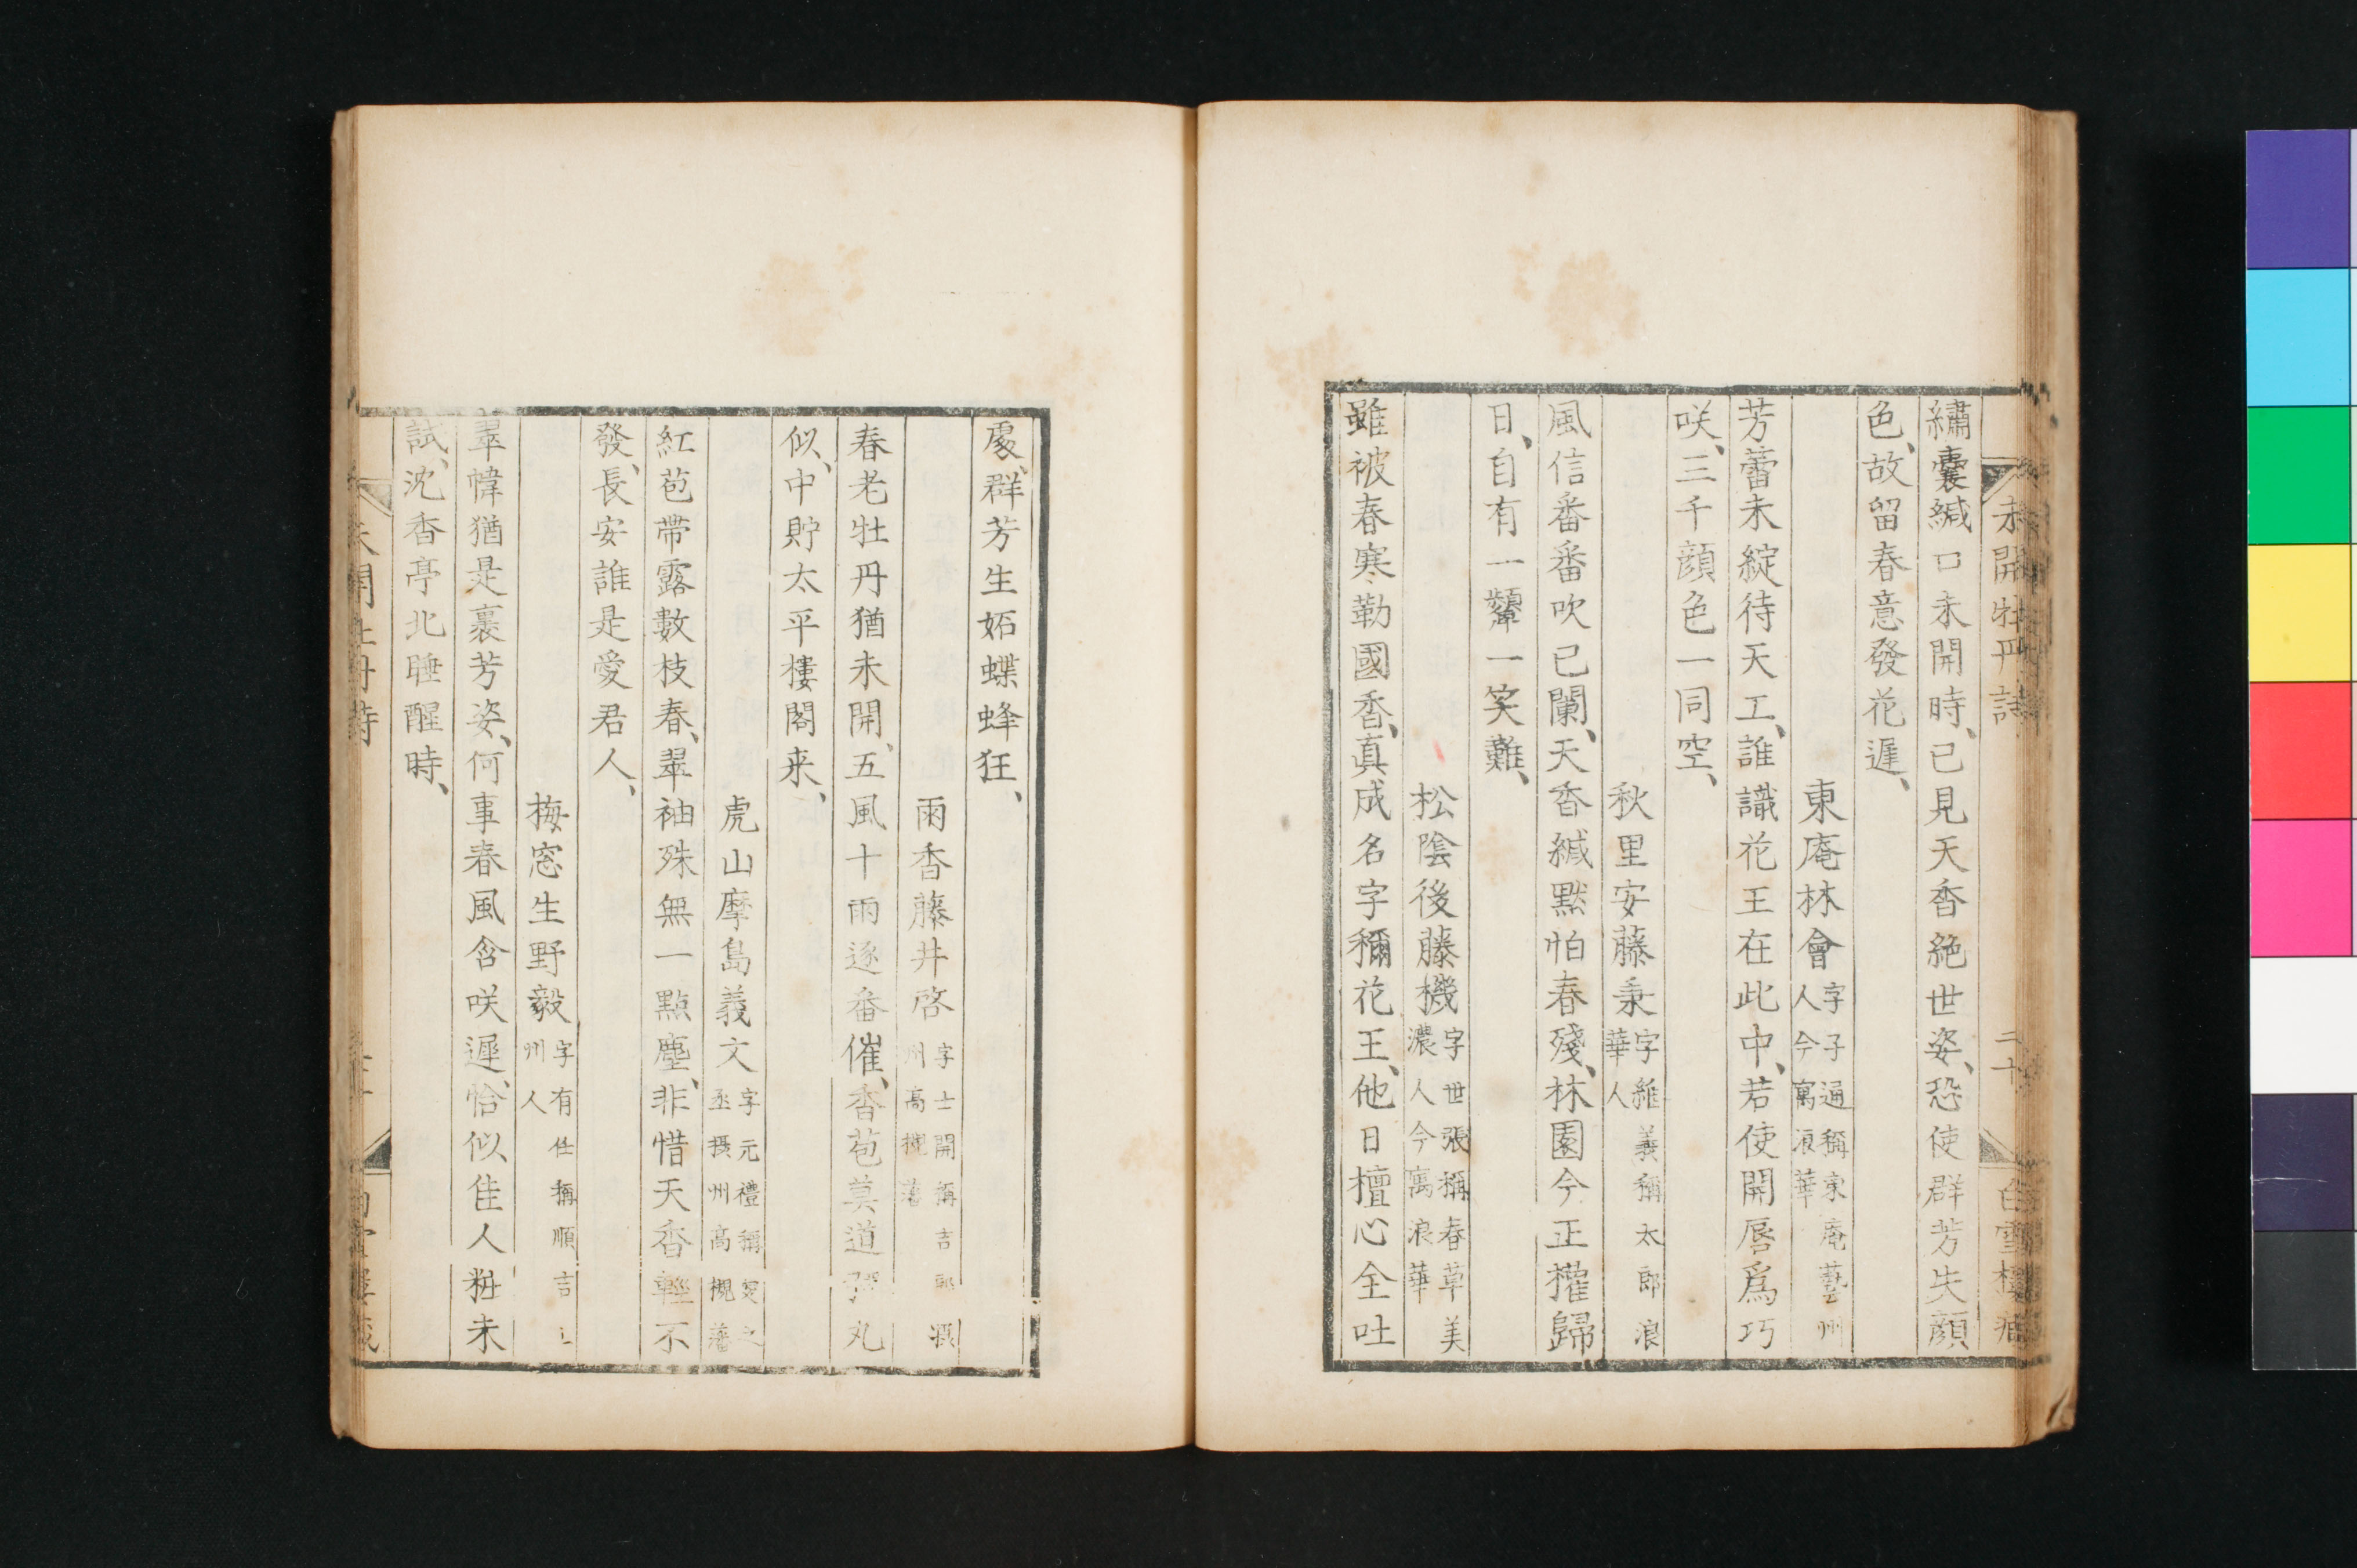 未開牡丹詩
二十
白雪樓藏
繡囊緘口未開時、已見天香絕世姿、恐使群芳失顏
色、故留春意發花遲、
東庵林會
字子通稱東庵藝州
人今寓浪華
芳蕾未綻待天工、誰識花王在此中、若使開唇爲巧
咲、三千顏色一同空、
秋里安藤秉
字維義稱太郎浪
華人
風信番番吹已闌、天香緘默怕春殘、林園今正權歸
日、自有一顰一笑難、
松陰後藤機
字世張稱春草美
濃人今寓浪華
雖被春寒勒國香、真成名字稱花王、他日檀心全吐
處、群芳生妬蝶蜂狂、
雨香藤井啓
字士開稱吉郎攝
州高槻藩
春老牡丹猶未開、五風十雨逐番催、香苞莫道彈丸
似、中貯太平樓閣来、
虎山摩島義文
字元禮稱之
丞攝州高槻藩
紅苞帶露數枝春、翠袖殊無一點塵、非惜天香輕不
發、長安誰是愛君人、
梅窓生野毅
字有仕稱順吉
州人
翠幃猶是裹芳姿、何事春風含咲遲、恰似佳人粧未
試、沈香亭北睡醒時、
未開牡丹詩